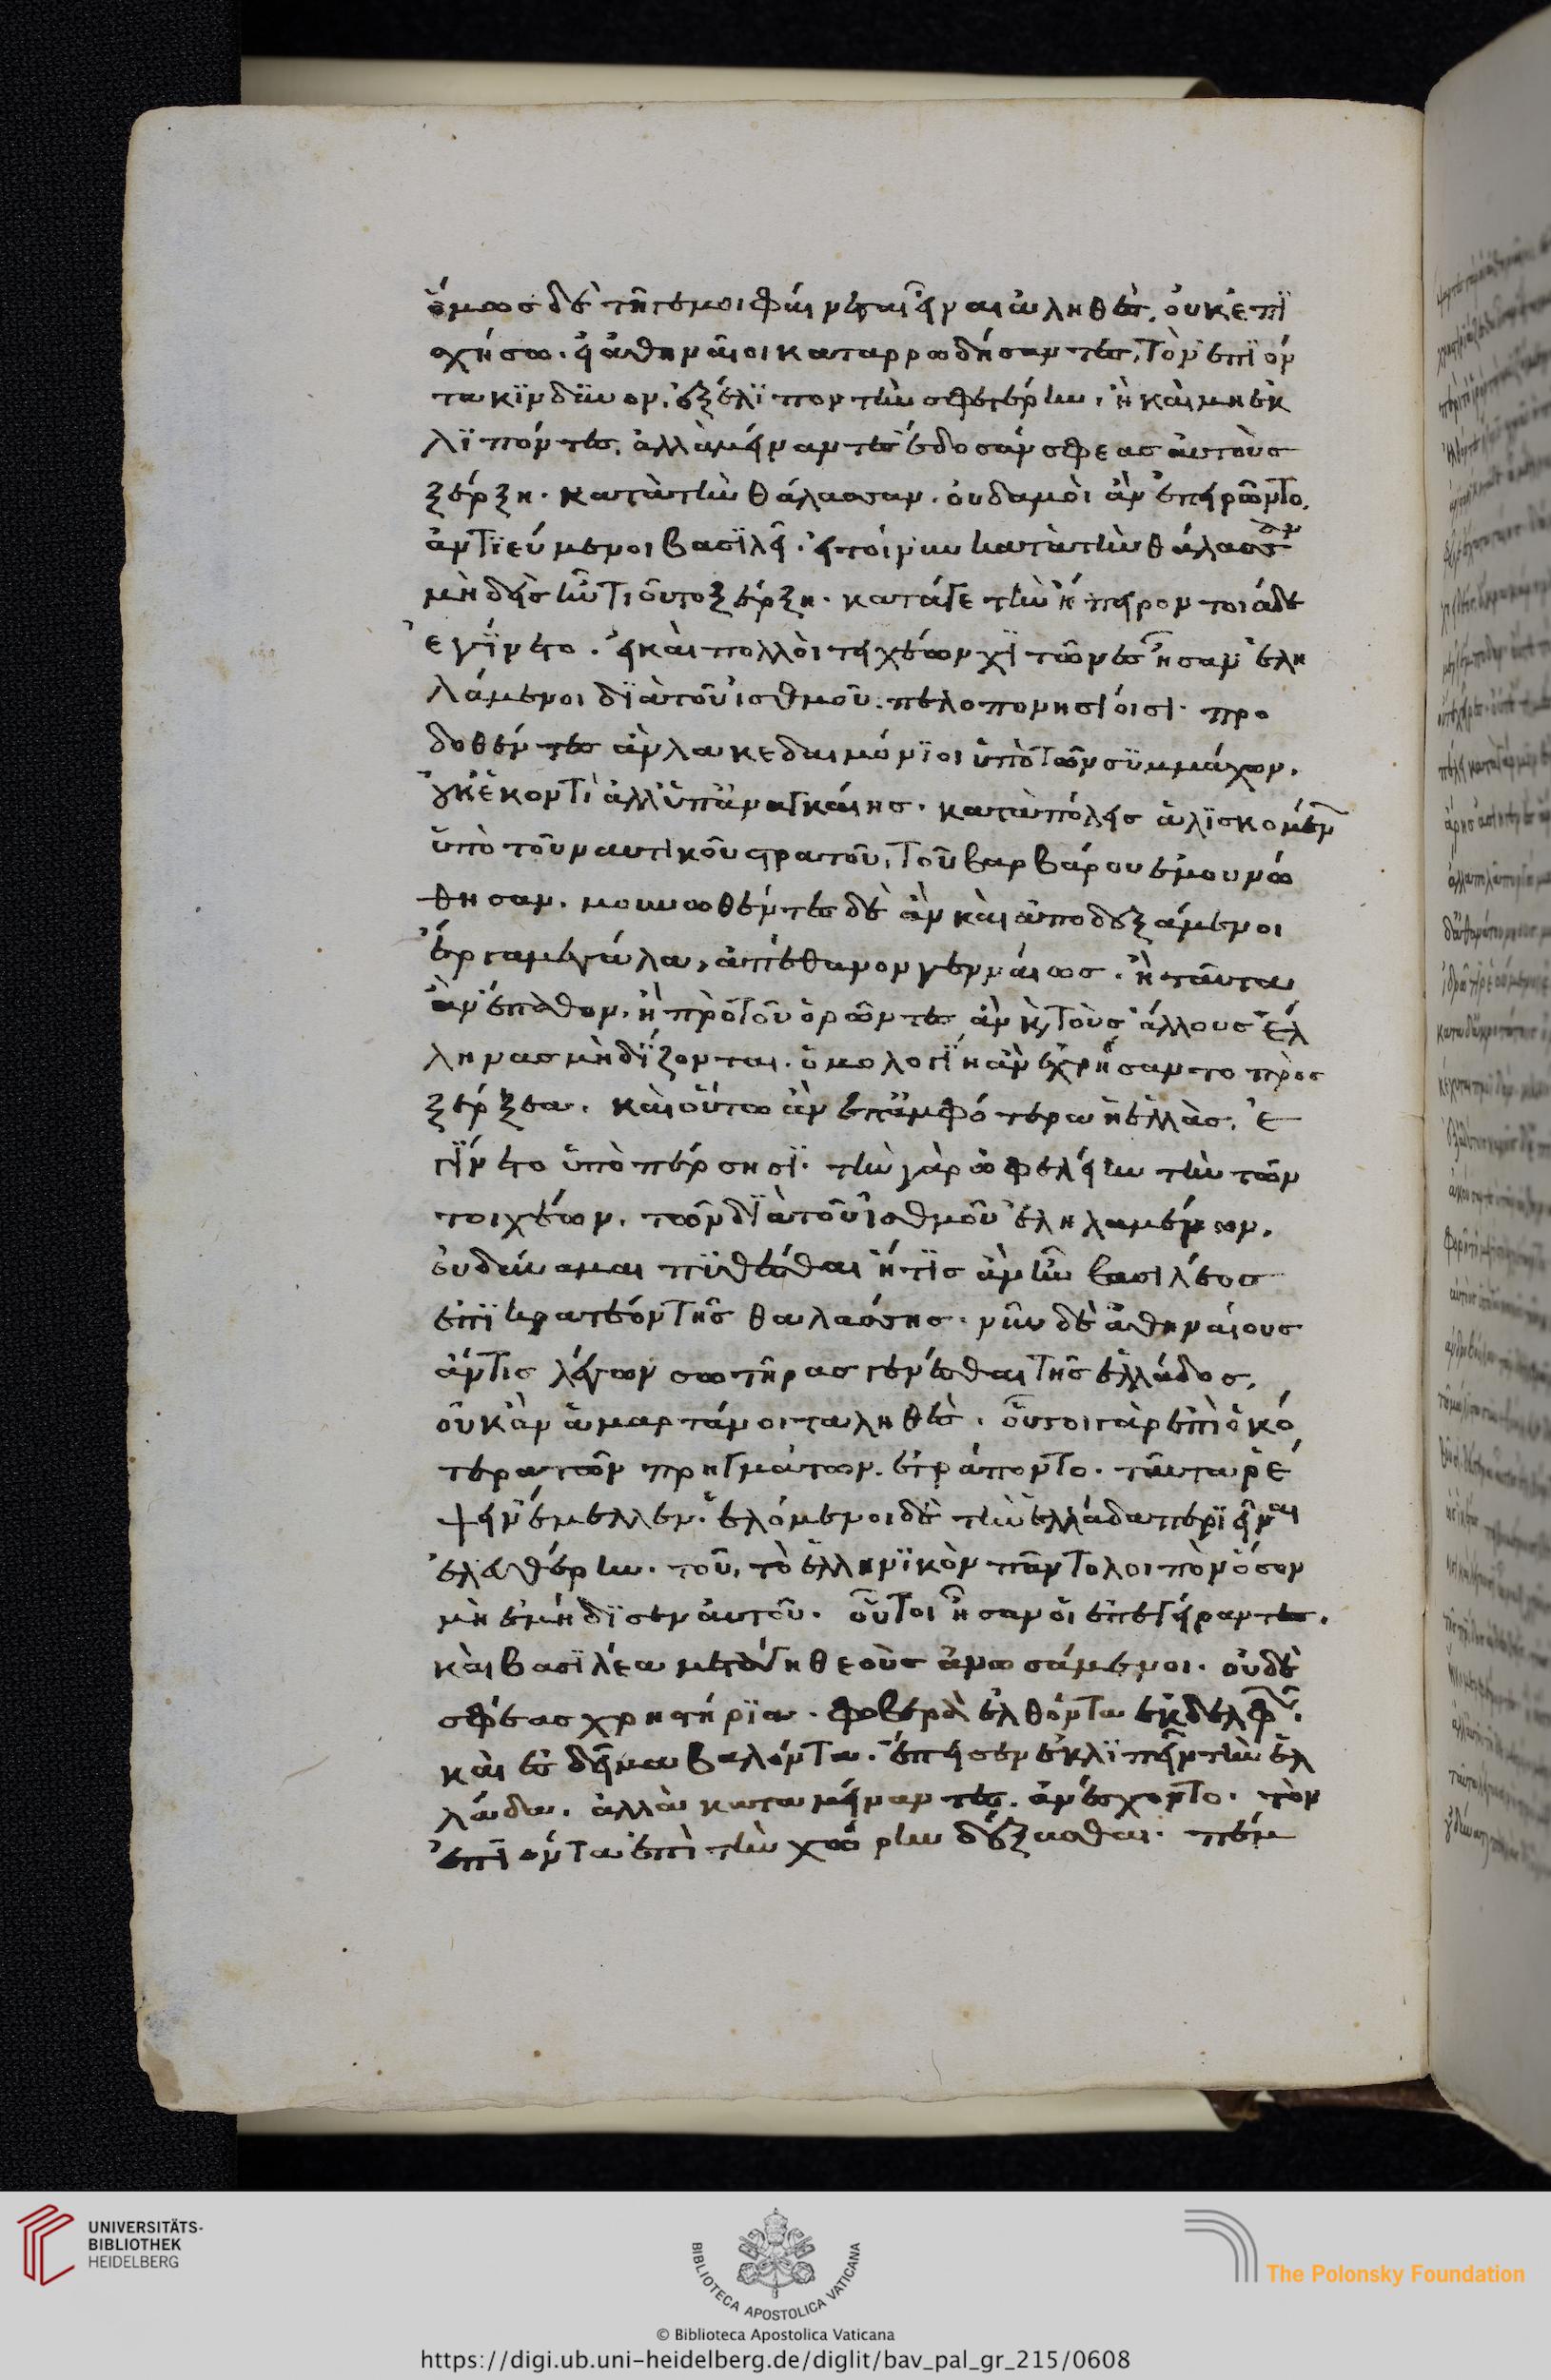 ὅμως δὲ τῆ γε μοι φαίνεται εἶναι ἀληθὲς, οὐκ ἐπϊ
σχήσω. εἰ ἀθηναῖοι καταρρωδήσαντες, τὸν ἐπϊόν
τα κίνδϋνον, ἐξέλϊπον τὴν σφετέρην, ἢ καὶ μὴ ἐκ
λϊπόντες, ἀλλὰ μείναντες ἔδοσάν σφεας αὐτοὺς
ξέρξη. κατὰ τὴν θάλασσαν. οὐδαμοὶ ἂν ἐπειρῶντο,
ἀντϊεύμενοι βασϊλεῖ. εἰ τοίνυν κατὰ τὴν θάλασσαν
μὴδεὶς ἦν τιοῦτο ξέρξη. κατά γε τὴν ἤπειρον τοιάδε
ἐγίνετο. εἰ καὶ πολλοὶ τειχέων χϊτῶνες ἦσαν ἐλη
λάμενοι δϊὰ τοῦ ἰσθμοῦ. πελοπονησίοισι. προ
δοθέντες ἂν λακεδαιμόνϊοι ὑπὸ τῶν συμμάχων.
οὐκ ἑκοντὶ ἀλλ' ὑπ' ἀναγκαίης. κατὰ πόλεις ἁλϊσκομένων
ὑπὸ τοῦ ναυτικοῦ στρατοῦ, τοῦ βαρβάρου ἐμουνώ
θησαν. μουνωθέντες δὲ ἂν καὶ ἀποδεξάμενοι
ἔργα μεγάλα, ἀπέθανον γενναίως. ἢ ταῦτα
ἂν ἔπαθον. ἢ πρὸ τοῦ ὁρῶντες ἂν καὶ τοὺς ἄλλους ἕλ
ληνας μὴδίζοντας. ὁμολογίη ἂν ἐχρήσαντο πρὸς
ξέρξεα. καὶ οὕτω ἂν ἐπ' ἀμφότερα ἡ ἑλλὰς, ἐ
γίνετο ὑπὸ πέρσησϊ. τὴν γὰρ ὠφελείην τὴν τῶν
τοιχέων. τῶν δϊὰ τοῦ ἰσθμοῦ ἐληλαμένων.
οὐ δύναμαι πϋθέσθαι ἥτϊς ἂν ἦν βασιλέος
ἐπϊκρατέοντῆς θαλάσσης. νῦν δὲ ἀθηναίους
ἄντις λέγων σωτῆρας γενέσθαι τῆς ἑλλάδος,
οὐκ ἂν ἁμαρτάνοι ταληθὲς. οὗτοι γὰρ ἐπὶ ὁκό
τερα τῶν πρηγμάτων. ἐτράποντο. ταῦτα ῥέ
ψειν ἔμελλεν. ἑλόμενοι δὲ τὴν ἑλλάδα περϊεῖναι
ἐλευθέρην. τοῦ, τὸ ἑλληνϊκὸν πᾶν τὸ λοιπὸν ὅσον
μὴ ἐμήδϊσεν αὐτοῦ. οὗτοι ἦσαν οἱ ἐπεγείραντες.
καὶ βασϊλέα μετά γη θεοὺς ἀνωσάμενοι. οὐδὲ
σφέας χρηστήρϊα. φοβερὰ ἐλθόντα ἐκ δελφῶν.
καὶ ἐς δεῖμα βαλόντα. ἔπεισεν ἐκλϊπεῖν τὴν ἑλ
λάδα. ἀλλὰ καταμείναντες. ἀνέσχοντο. τὸν
ἐπϊόντα ἐπὶ τὴν χώρην δέξασθαι. πέμ
UNIVERSITÄTS-
BIBLIOTHEK
HEIDELBERG
BIBLIOTECA APOSTOLICA VATICANA
The Polonsky Foundation
© Biblioteca Apostolica Vaticana
https://digi.ub.uni-heidelberg.de/diglit/bav_pal_gr_215/0608